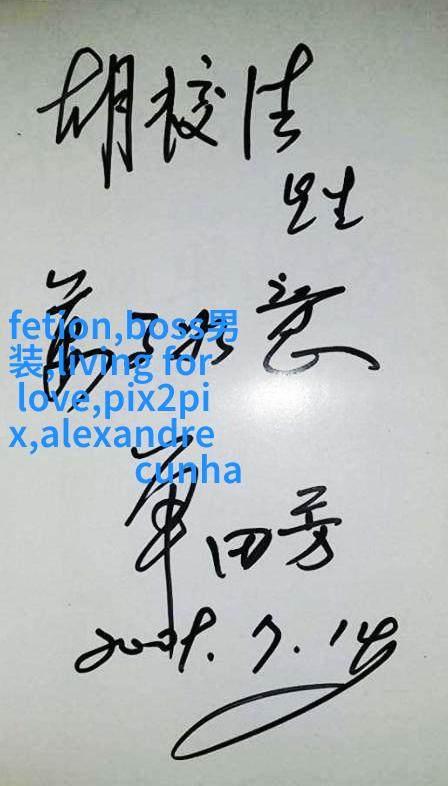 胡
先生
萬事如意
fetion,boss男
装,living for
love,pix2pi
x,alexandre
cunha
单田芳